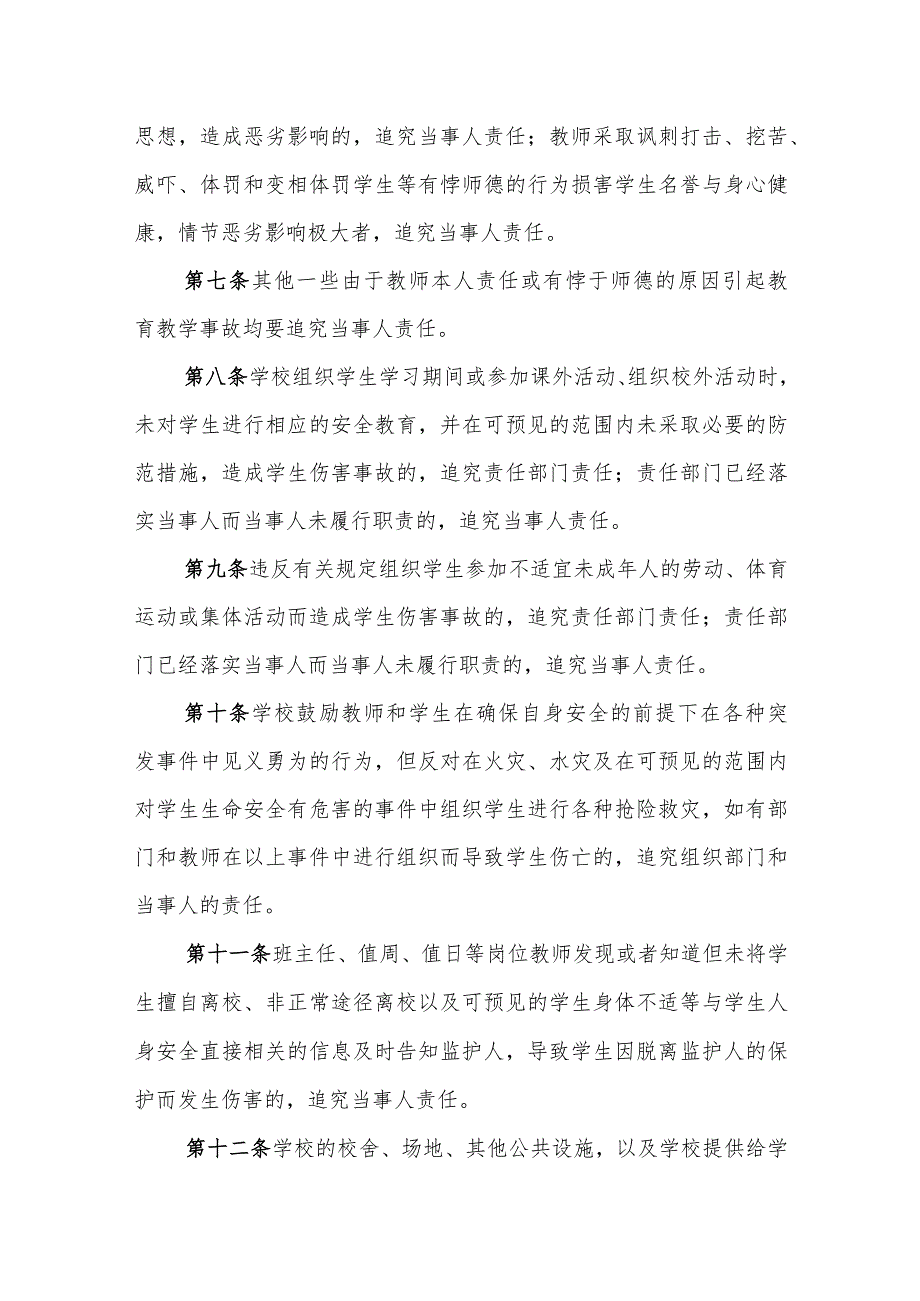 思想，造成恶劣影响的，追究当事人责任；教师采取讽刺打击、挖苦、
威吓、体罚和变相体罚学生等有悖师德的行为损害学生名誉与身心健
康，情节恶劣影响极大者，追究当事人责任。
第七条其他一些由于教师本人责任或有悖于师德的原因引起教
育教学事故均要追究当事人责任。
第八条学校组织学生学习期间或参加课外活动、组织校外活动时，
未对学生进行相应的安全教育，并在可预见的范围内未采取必要的防
范措施，造成学生伤害事故的，追究责任部门责任；责任部门已经落
实当事人而当事人未履行职责的，追究当事人责任。
第九条违反有关规定组织学生参加不适宜未成年人的劳动、体育
运动或集体活动而造成学生伤害事故的，追究责任部门责任；责任部
门已经落实当事人而当事人未履行职责的，追究当事人责任。
第十条学校鼓励教师和学生在确保自身安全的前提下在各种突
发事件中见义勇为的行为，但反对在火灾、水灾及在可预见的范围内
对学生生命安全有危害的事件中组织学生进行各种抢险救灾，如有部
门和教师在以上事件中进行组织而导致学生伤亡的，追究组织部门和
当事人的责任。
第十一条班主任、值周、值日等岗位教师发现或者知道但未将学
生擅自离校、非正常途径离校以及可预见的学生身体不适等与学生人
身安全直接相关的信息及时告知监护人，导致学生因脱离监护人的保
护而发生伤害的，追究当事人责任。
第十二条学校的校舍、场地、其他公共设施，以及学校提供给学